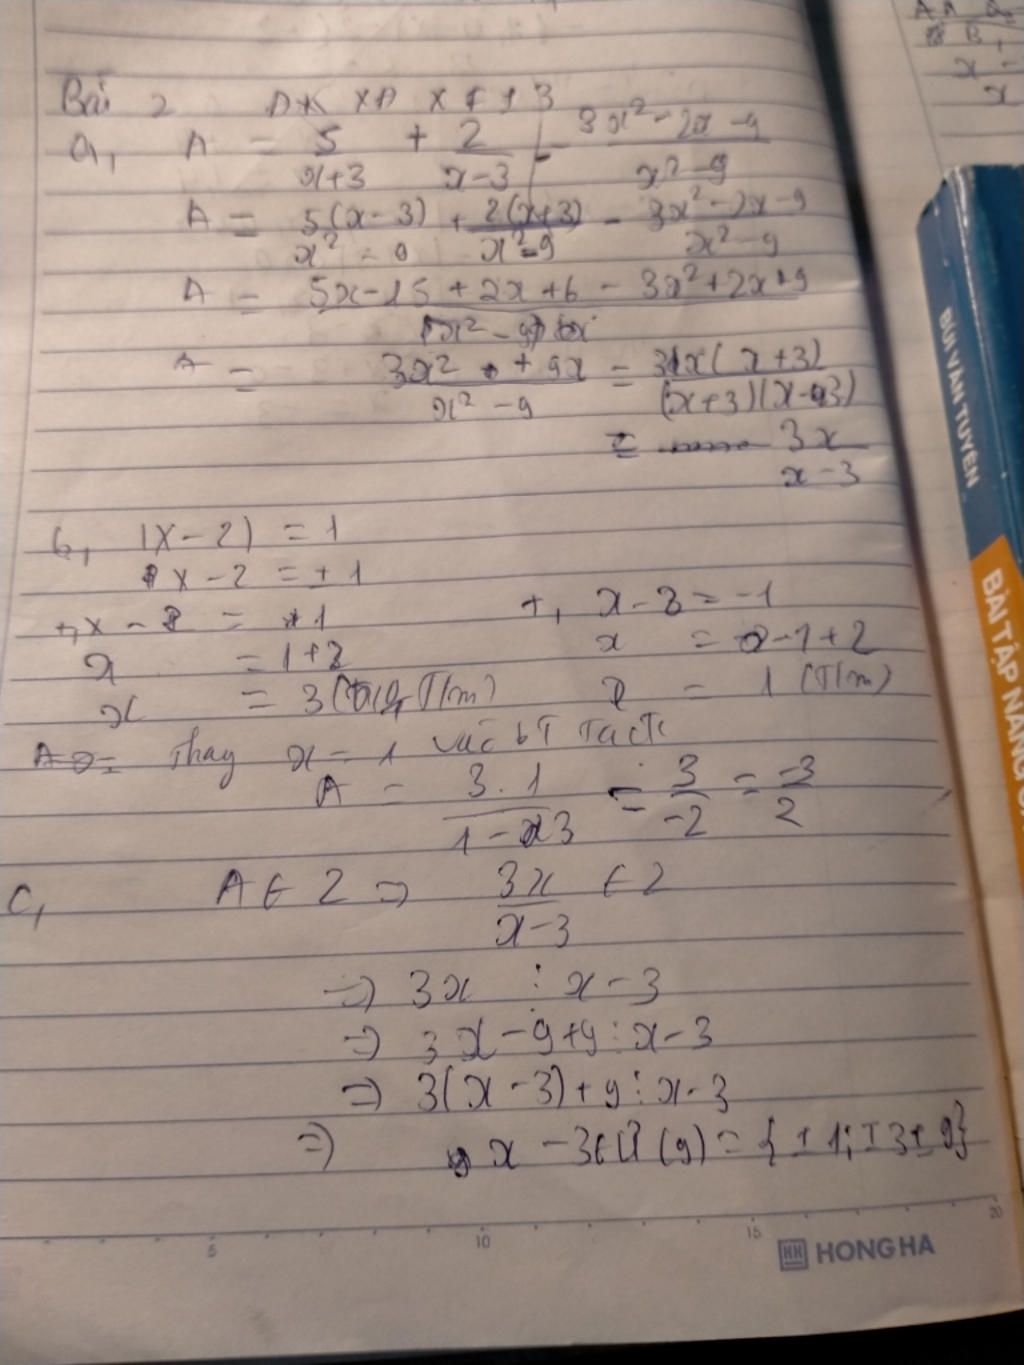 Bài 2 ĐK XĐ x ≠ ± 3
a, A = 5/(x+3) + 2/(x-3) - (3x² - 2x - 9)/(x² - 9)
A = 5(x-3)/(x² - 9) + 2(x+3)/(x² - 9) - (3x² - 2x - 9)/(x² - 9)
A = (5x - 15 + 2x + 6 - 3x² + 2x + 9)/(x² - 9)
A = (3x² + 9x)/(x² - 9) = 3x(x+3)/((x+3)(x-3))
= 3x/(x-3)
b, |x - 2| = 1
x - 2 = ± 1
+, x - 2 = 1 +, x - 2 = -1
x = 1 + 2 x = -1 + 2
x = 3 (T/m) x = 1 (T/m)
Thay x = 1 vào bT
A = (3.1)/(1 - 3) = 3/-2 = -3/2
C, A ∈ Z => 3x/(x-3) ∈ Z
=> 3x ⋮ x - 3
=> 3x - 9 + 9 ⋮ x - 3
=> 3(x - 3) + 9 ⋮ x - 3
=> x - 3 ∈ Ư(9) = {±1; ±3 ± 9}
5 10 15 20
HH HONG HA
BÙI VĂN TUYÊN
BÀI TẬP NÂNG C